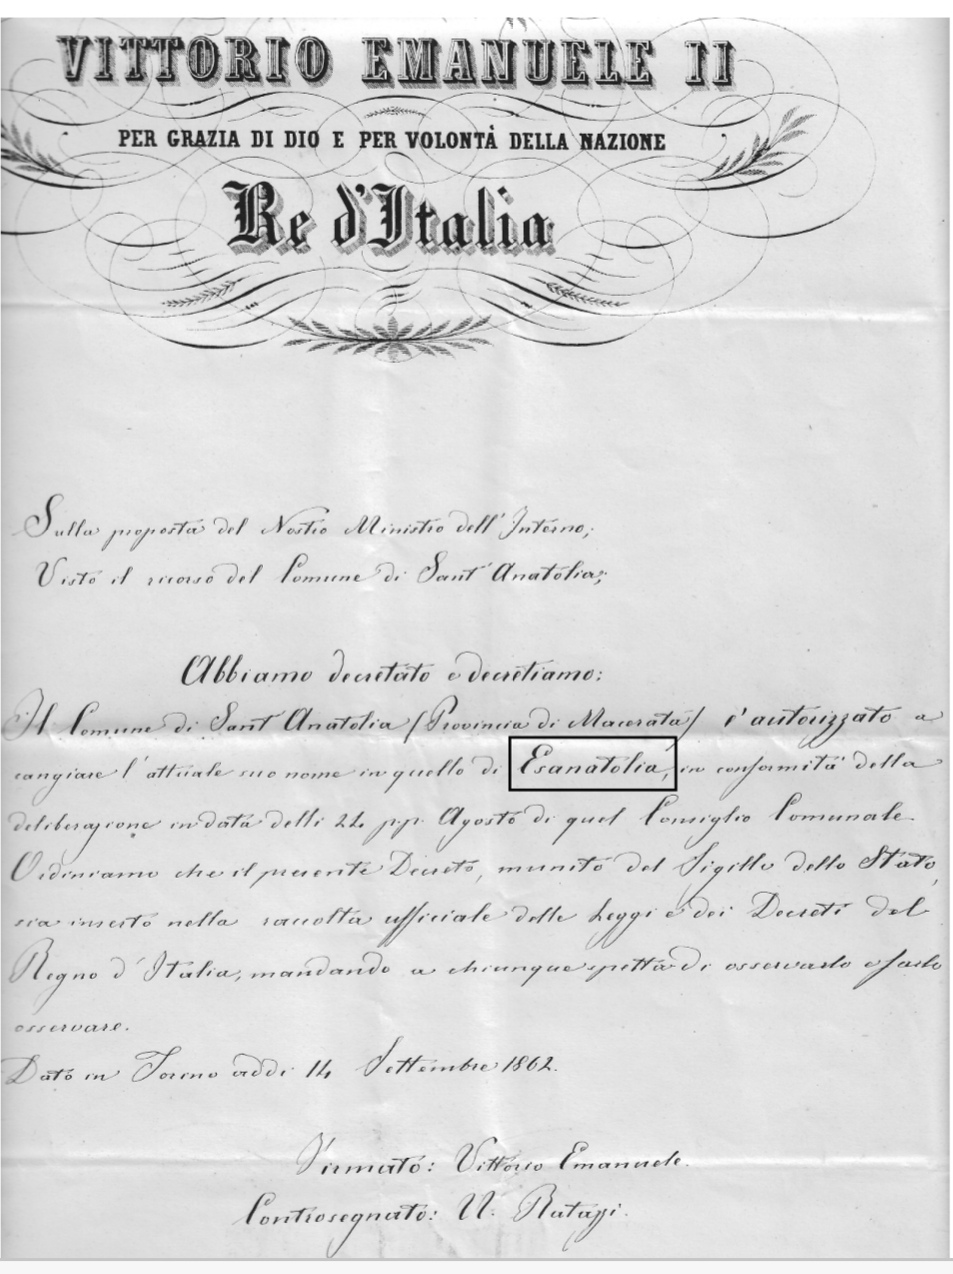 VITTORIO EMANUELE II
PER GRAZIA DI DIO E PER VOLONTÀ DELLA NAZIONE
Re d'Italia
Sulla proposta del Nostro Ministro dell'Interno;
Visto il ricorso del Comune di Sant'Anatolia;
Abbiamo decretato e decretiamo:
Il Comune di Sant'Anatolia (Provincia di Macerata) è autorizzato a
cangiare l'attuale suo nome in quello di Esanatolia, in conformità della
deliberazione in data delli 22 p.p. Agosto di quel Consiglio Comunale.
Ordiniamo che il presente Decreto, munito del Sigillo dello Stato,
sia inserto nella raccolta ufficiale delle Leggi e dei Decreti del
Regno d'Italia, mandando a chiunque spetti di osservarlo e farlo
osservare.
Dato in Torino addì 14 Settembre 1862.
Firmato: Vittorio Emanuele.
Controsegnato: U. Ratazzi.